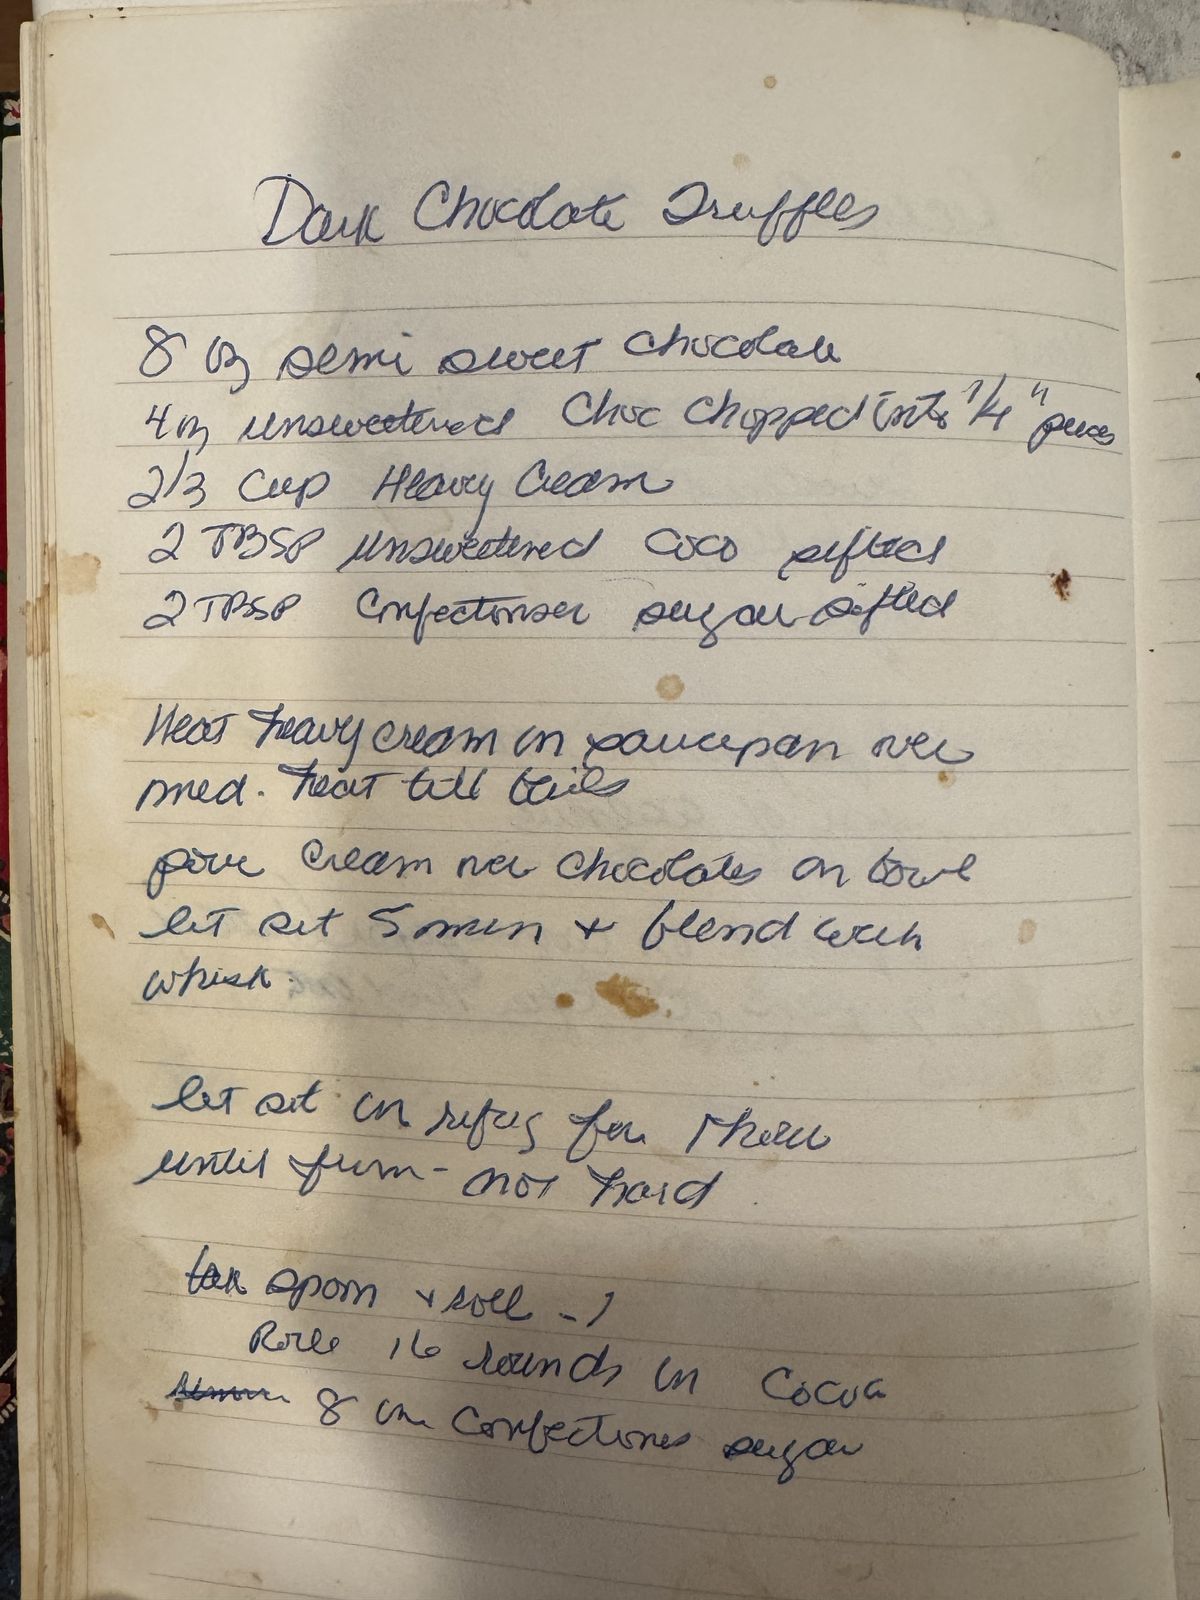 Dark Chocolate Truffles
8 oz semi sweet chocolate
4 oz unsweetened Choc chopped into 1/4" pieces
2/3 Cup Heavy Cream
2 TBSP unsweetened coco sifted
2 TBSP Confectionser sugar sifted
Heat heavy cream in saucepan over
med. heat till boils
pour cream over chocolates in bowl
let set 5 min + blend with
whisk.
let set in refrig for 1 hour
until firm - not hard
spoon + roll -
Roll 16 rounds in Cocoa
8 in Confectiones sugar